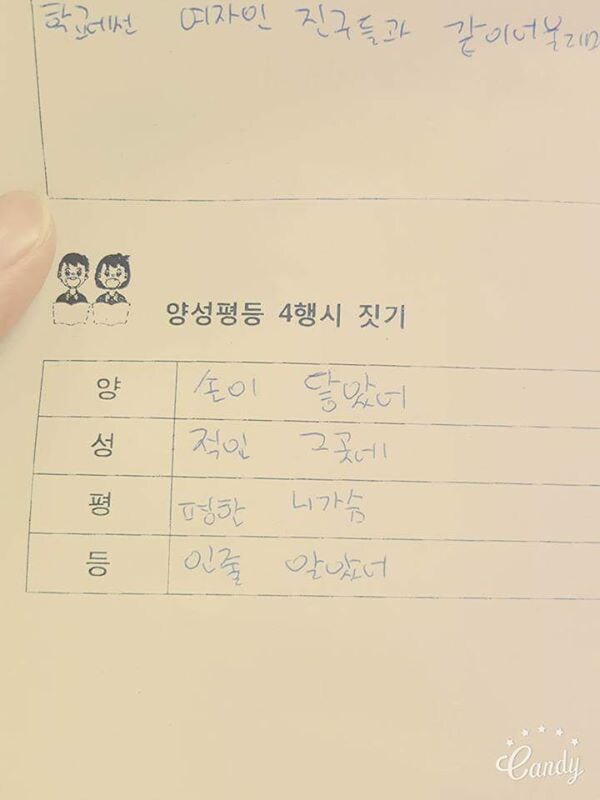 학교에선 여자인 친구들과 같이어울리며
양성평등 4행시 짓기
양 손이 닿았어
성 적인 그곳에
평 평한 니가슴
등 인줄 알았어
Candy